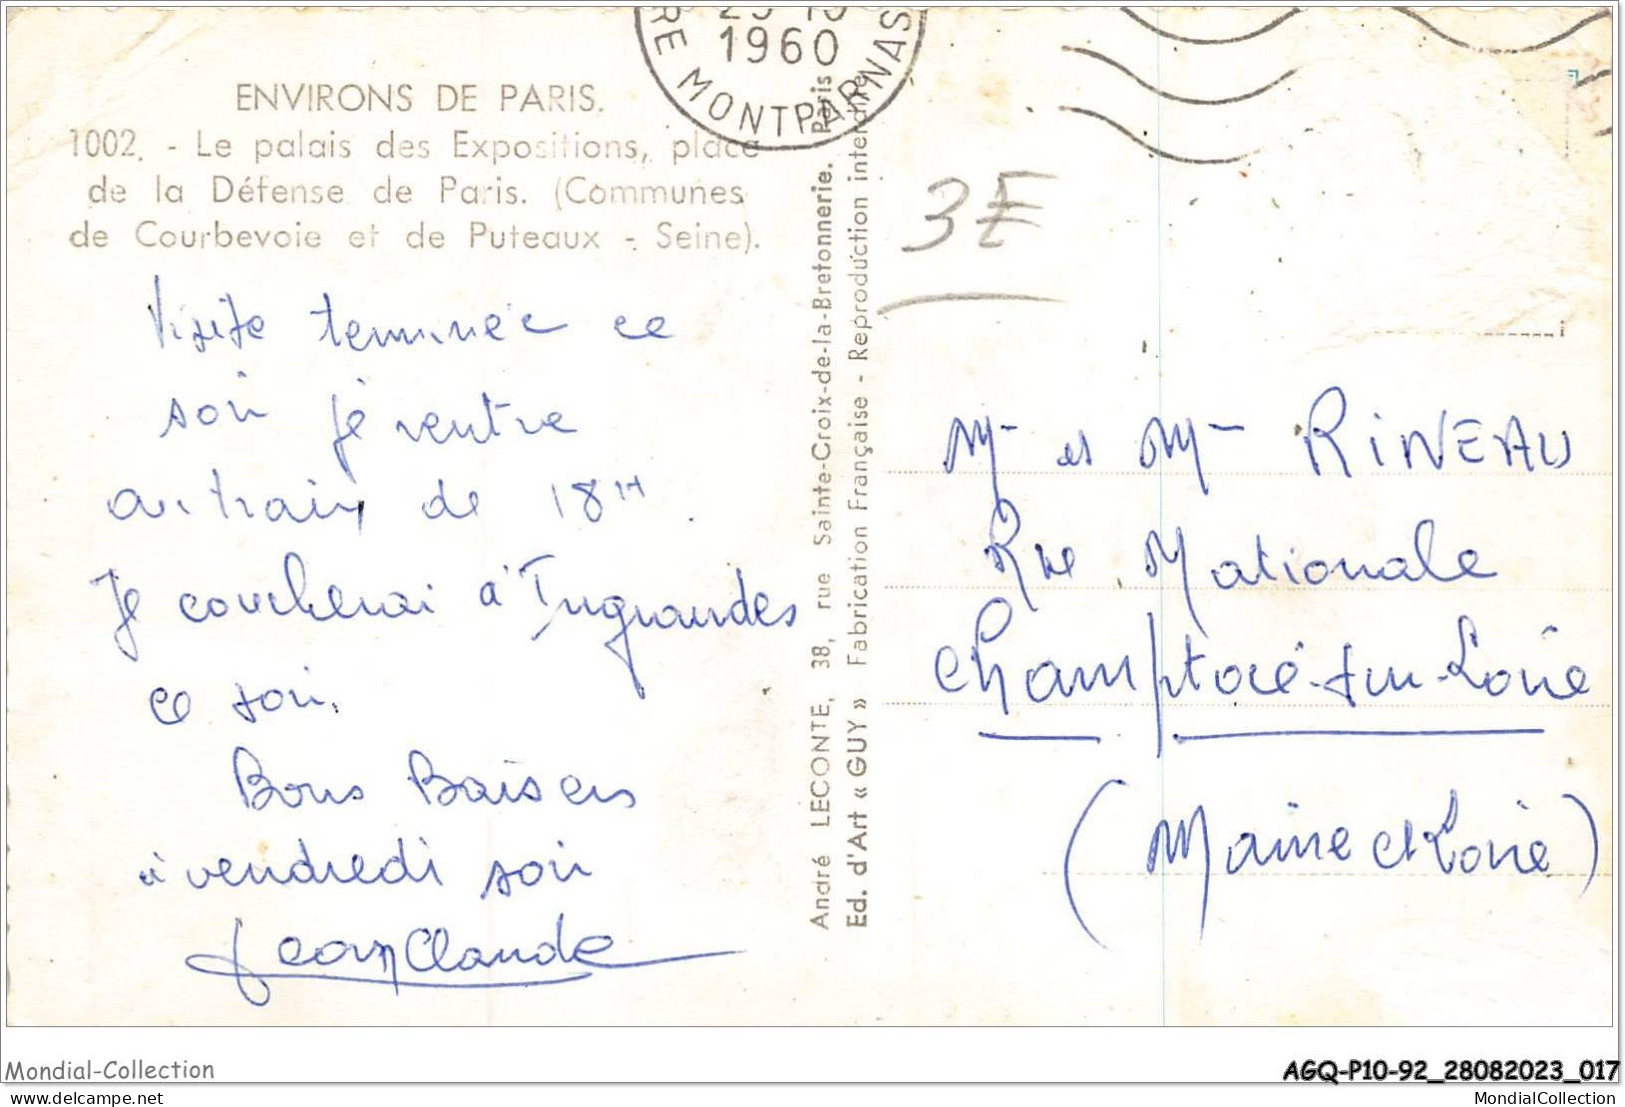 1960
RE MONTPARNAS
ENVIRONS DE PARIS.
1002. - Le palais des Expositions, place
de la Défense de Paris. (Communes
de Courbevoie et de Puteaux - Seine).
Visite terminée ce
soir je rentre
au train de 18H.
Je coucherai à Ingrandes
ce soir.
Bons Baisers
à vendredi soir
Jean Claude
André LECONTE, 38, rue Sainte-Croix-de-la-Bretonnerie. Paris
Ed. d'Art « GUY » Fabrication Française - Reproduction interdite
3E
Mr et Mme RiNEAU
Rue Nationale
Champtocé-sur-Loire
(Maine et Loire)
Mondial-Collection
AGQ-P10-92_28082023_017
delcampe.net
MondialCollection